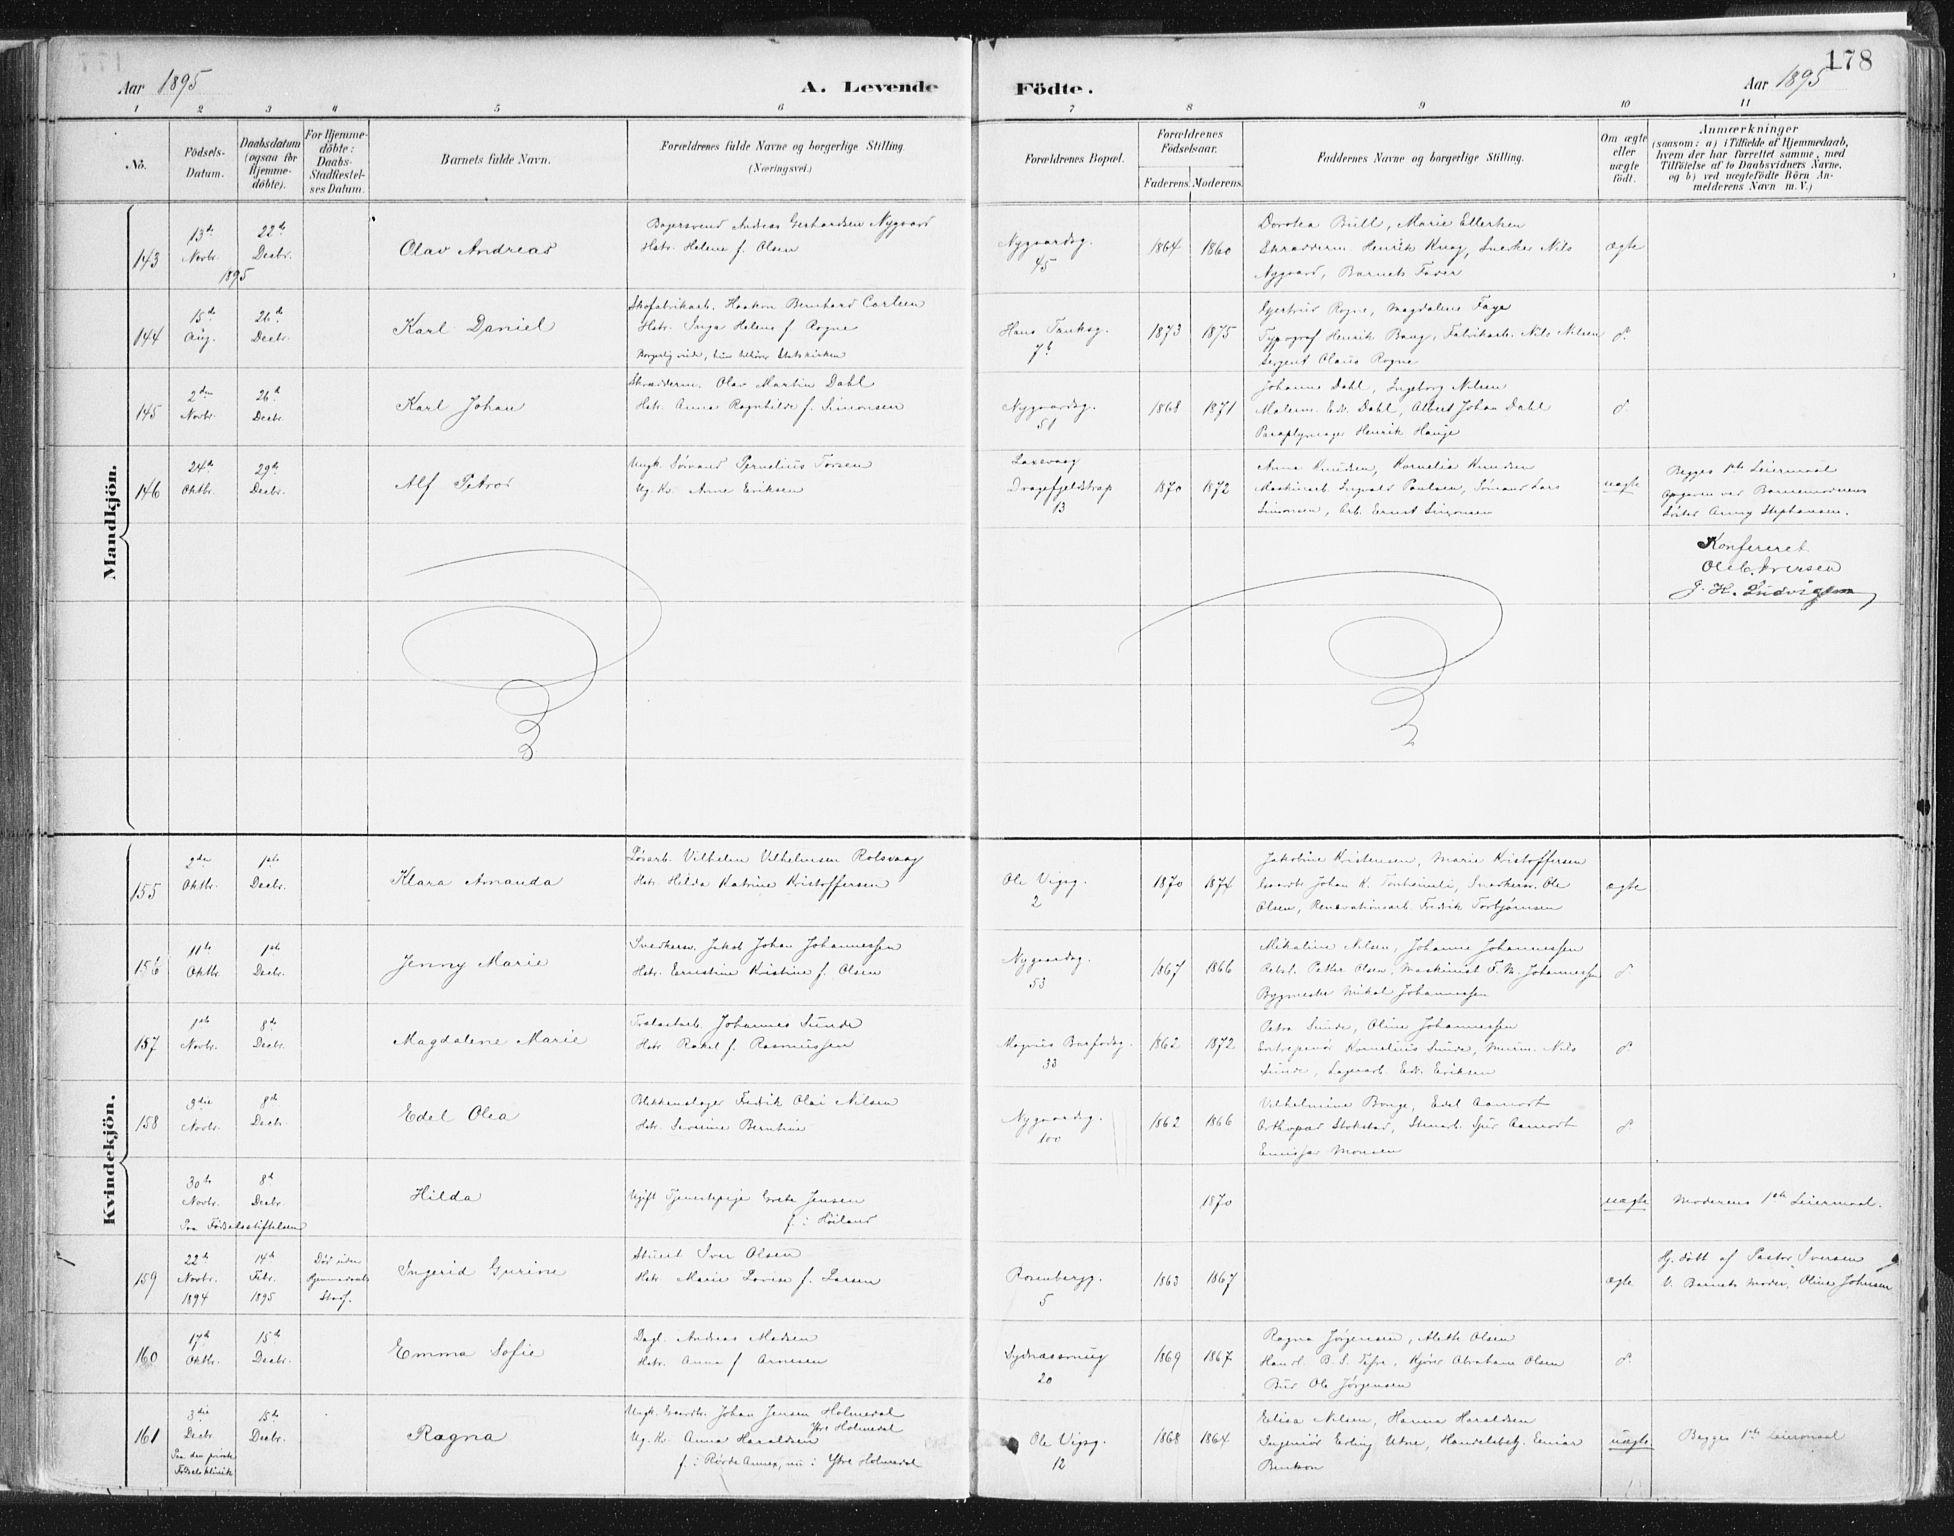 178
Aar 1895
A. Levende
Födte.
Aar 1895
1 2 3 4 5 6 7 8 9 10 11
No.
Födsels-
Datum.
Daabsdatum
(ogsaa for
Hjemme-
döbte).
For Hjemme-
döbte:
Daabs-
Stadfæstel-
ses Datum.
Barnets fulde Navn.
Forældrenes fulde Navne og borgerlige Stilling.
(Næringsvei.)
Forældrenes Bopæl.
Forældrenes
Födselsaar.
Faderens.
Moderens.
Faddernes Navne og borgerlige Stilling.
Om ægte
eller
uægte
födt.
Anmærkninger
(saasom: a) i Tilfælde af Hjemmedaab,
hvem der har forrettet samme, med
Tilföielse af to Daabsvidners Navne,
og b) ved uægtefödte Börn An-
melderens Navn m. V.)
Mandkjön.
143
13de
Novbr.
1895
22de
Decbr.
Olav Andreas
Bagersvend Andreas Gerhardsen Nygaard
Hstr. Helene f. Olsen
Nygaardsg.
45
1864
1860
Dorotea Bull, Marie Ellerken
Skrædderm. Henrik Krag, Snedker Nils
Nygaard, Barnets Fader
ægte
144
15de
Aug.
26de
Decbr.
Karl Daniel
Skofabrikarb. Haakon Bernhard Carlsen
Hstr. Inga Helene f. Rogne
Borgerlig viede, hun tilhører Statskirken
Hans Tanksg.
7b
1873
1875
Gjertrud Rogne, Magdalene Faye
Typograf Henrik Bang, Fabrikarb. Nils Nilsen
Sergent Claus Rogne
d.
145
2den
Novbr.
26de
Decbr.
Karl Johan
Skrædderm. Olav Martin Dahl
Hstr. Anna Ragnhilde f. Simonsen
Nygaardsg.
51
1868
1871
Johanne Dahl, Ingeborg Nilsen
Malerm. Edv. Dahl, Albert Johan Dahl
Paraplymager Henrik Hauge
d.
146
24de
Oktbr.
29de
Decbr.
Alf Petrod
Ungk. Sømand Pernelius Torsen
Ug. Kv. Anne Eriksen
Laxevaag
Dragefjeldstrap
13
1870
1872
Anna Knudsen, Kornelia Knudsen
Maskinarb. Ingvald Paulsen, Sømand Lars
Simonsen, Arb. Ernst Simonsen
uægte
Begges 1ste Leiermaal
Opgaven ved Barnemoderens
Søster Anny Stephansen.
Konfereret
Ole C. Iversen
J. H. Ludvigsen
Kvindekjön.
155
2den
Oktbr.
1ste
Decbr.
Klara Amanda
Løsarb. Vilhelm Vilhelmsen Rotsvaag
Hstr. Hilda Katrine Kristoffersen
Ole Vigsg.
2
1870
1874
Jakobine Kristensen, Marie Kristoffersen
Johan K. Snedkersv. Ole
Olsen, Renovationsarb. Fredrik Torbjørnsen
ægte
156
11te
Oktbr.
1ste
Decbr.
Jenny Marie
Snedkersv. Jakob Johan Johannessen
Hstr. Ernestine Kristine f. Olsen
Nygaardsg.
53
1867
1866
Mikaline Nilsen, Johanne Johannessen
Petter Olsen, Maskinist F. M. Johannessen
Bygmester Mikal Johannessen
d.
157
1ste
Novbr.
8de
Decbr.
Magdalene Marie
Johannes Sunde
Hstr. Rakel f. Rasmussen
Magnus Barfodsg.
33
1862
1872
Petra Sunde, Oline Johannessen
Entreprenør Kornelius Sunde, Murm. Nils
Sunde, Lagerarb. Edv. Eriksen
d.
158
3die
Novbr.
8de
Decbr.
Edel Olea
Blikkenslager Fredrik Olai Nilsen
Hstr. Severine Berntine
Nygaardsg.
100
1862
1866
Vilhelmine Bonge, Edel Aamodt
Orthopæd Stokstad, Stenarb. Sjur Aamodt
Emissær Monsen
d.
30te
Novbr.
8de
Decbr.
Paa Fødselsstiftelsen
Hilda
Ugift Tjenestepige Grete Jensen
f. i Høiland
1870
uægte
Moderens 1ste Leiermaal.
159
22de
Novbr.
1894
14de
Febr.
1895
Død uden
Hjemmedaabs
Stadf.
Ingerid Gurine
Stuert Iver Olsen
Hstr. Marie Lovise f. Larsen
Rosenbergg.
5
1863
1867
ægte
Hj. døbt af Pastor Iversen
V. Barnets Moder, Oline Johnsen
160
17de
Oktbr.
15de
Decbr.
Emma Sofie
Dagl. Andreas Madsen
Hstr. Anna f. Arnesen
Sydnæssmug
20
1869
1867
Ragna Jørgensen, Aleth Olsen
Handl. B. S. Kjører Abraham Olsen
Bud Ole Jørgensen
d.
161
3die
Decbr.
15de
Decbr.
Paa den private
Fødselsklinik
Ragna
Ungk. Gaardbr. Johan Jensen Holmedal
Ytre Holmedal
Ug. Kv. Anna Haraldsen
f. i Røvde Annex, nu i Ytre Holmedal
Ole Vigsg.
12
1868
1864
Elisa Nilsen, Hanna Haraldsen
Ingeniør Erling Utne, Handelsbetj. Einar
Benkon
uægte
Begges 1ste Leiermaal